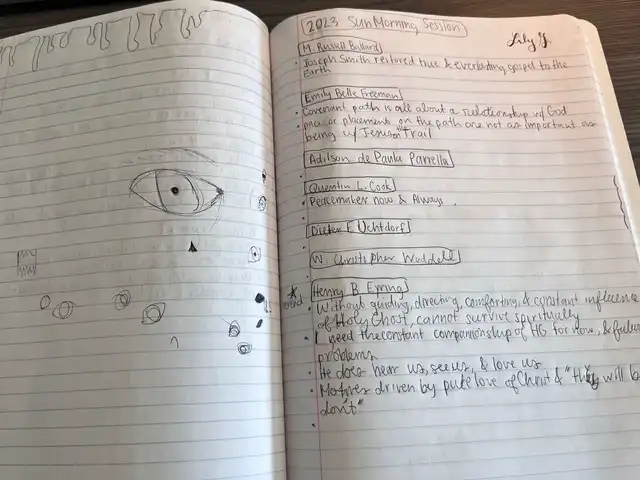 2023 Sun Morning Session
Lily Y.
M. Russell Ballard
• Joseph Smith restored true & everlasting gospel to the
Earth
Emily Belle Freeman
• Covenant path is all about a relationship w/ God
• or placements on the path are not as important as
being w/ Jesus on the Trail
Adilson de Paula Parrella
Quentin L. Cook
• Peacemaker now & Always.
Dieter F. Uchtdorf
W. Christopher Waddell
Henry B. Eyring
• Without guiding, directing, comforting, & constant influence
of Holy Ghost, cannot survive spiritually
I need the constant companionship of HG for now, & future
problems
• He does hear us, see us, & love us
• Motives driven by pure love of Christ & "Thy will be
don't"